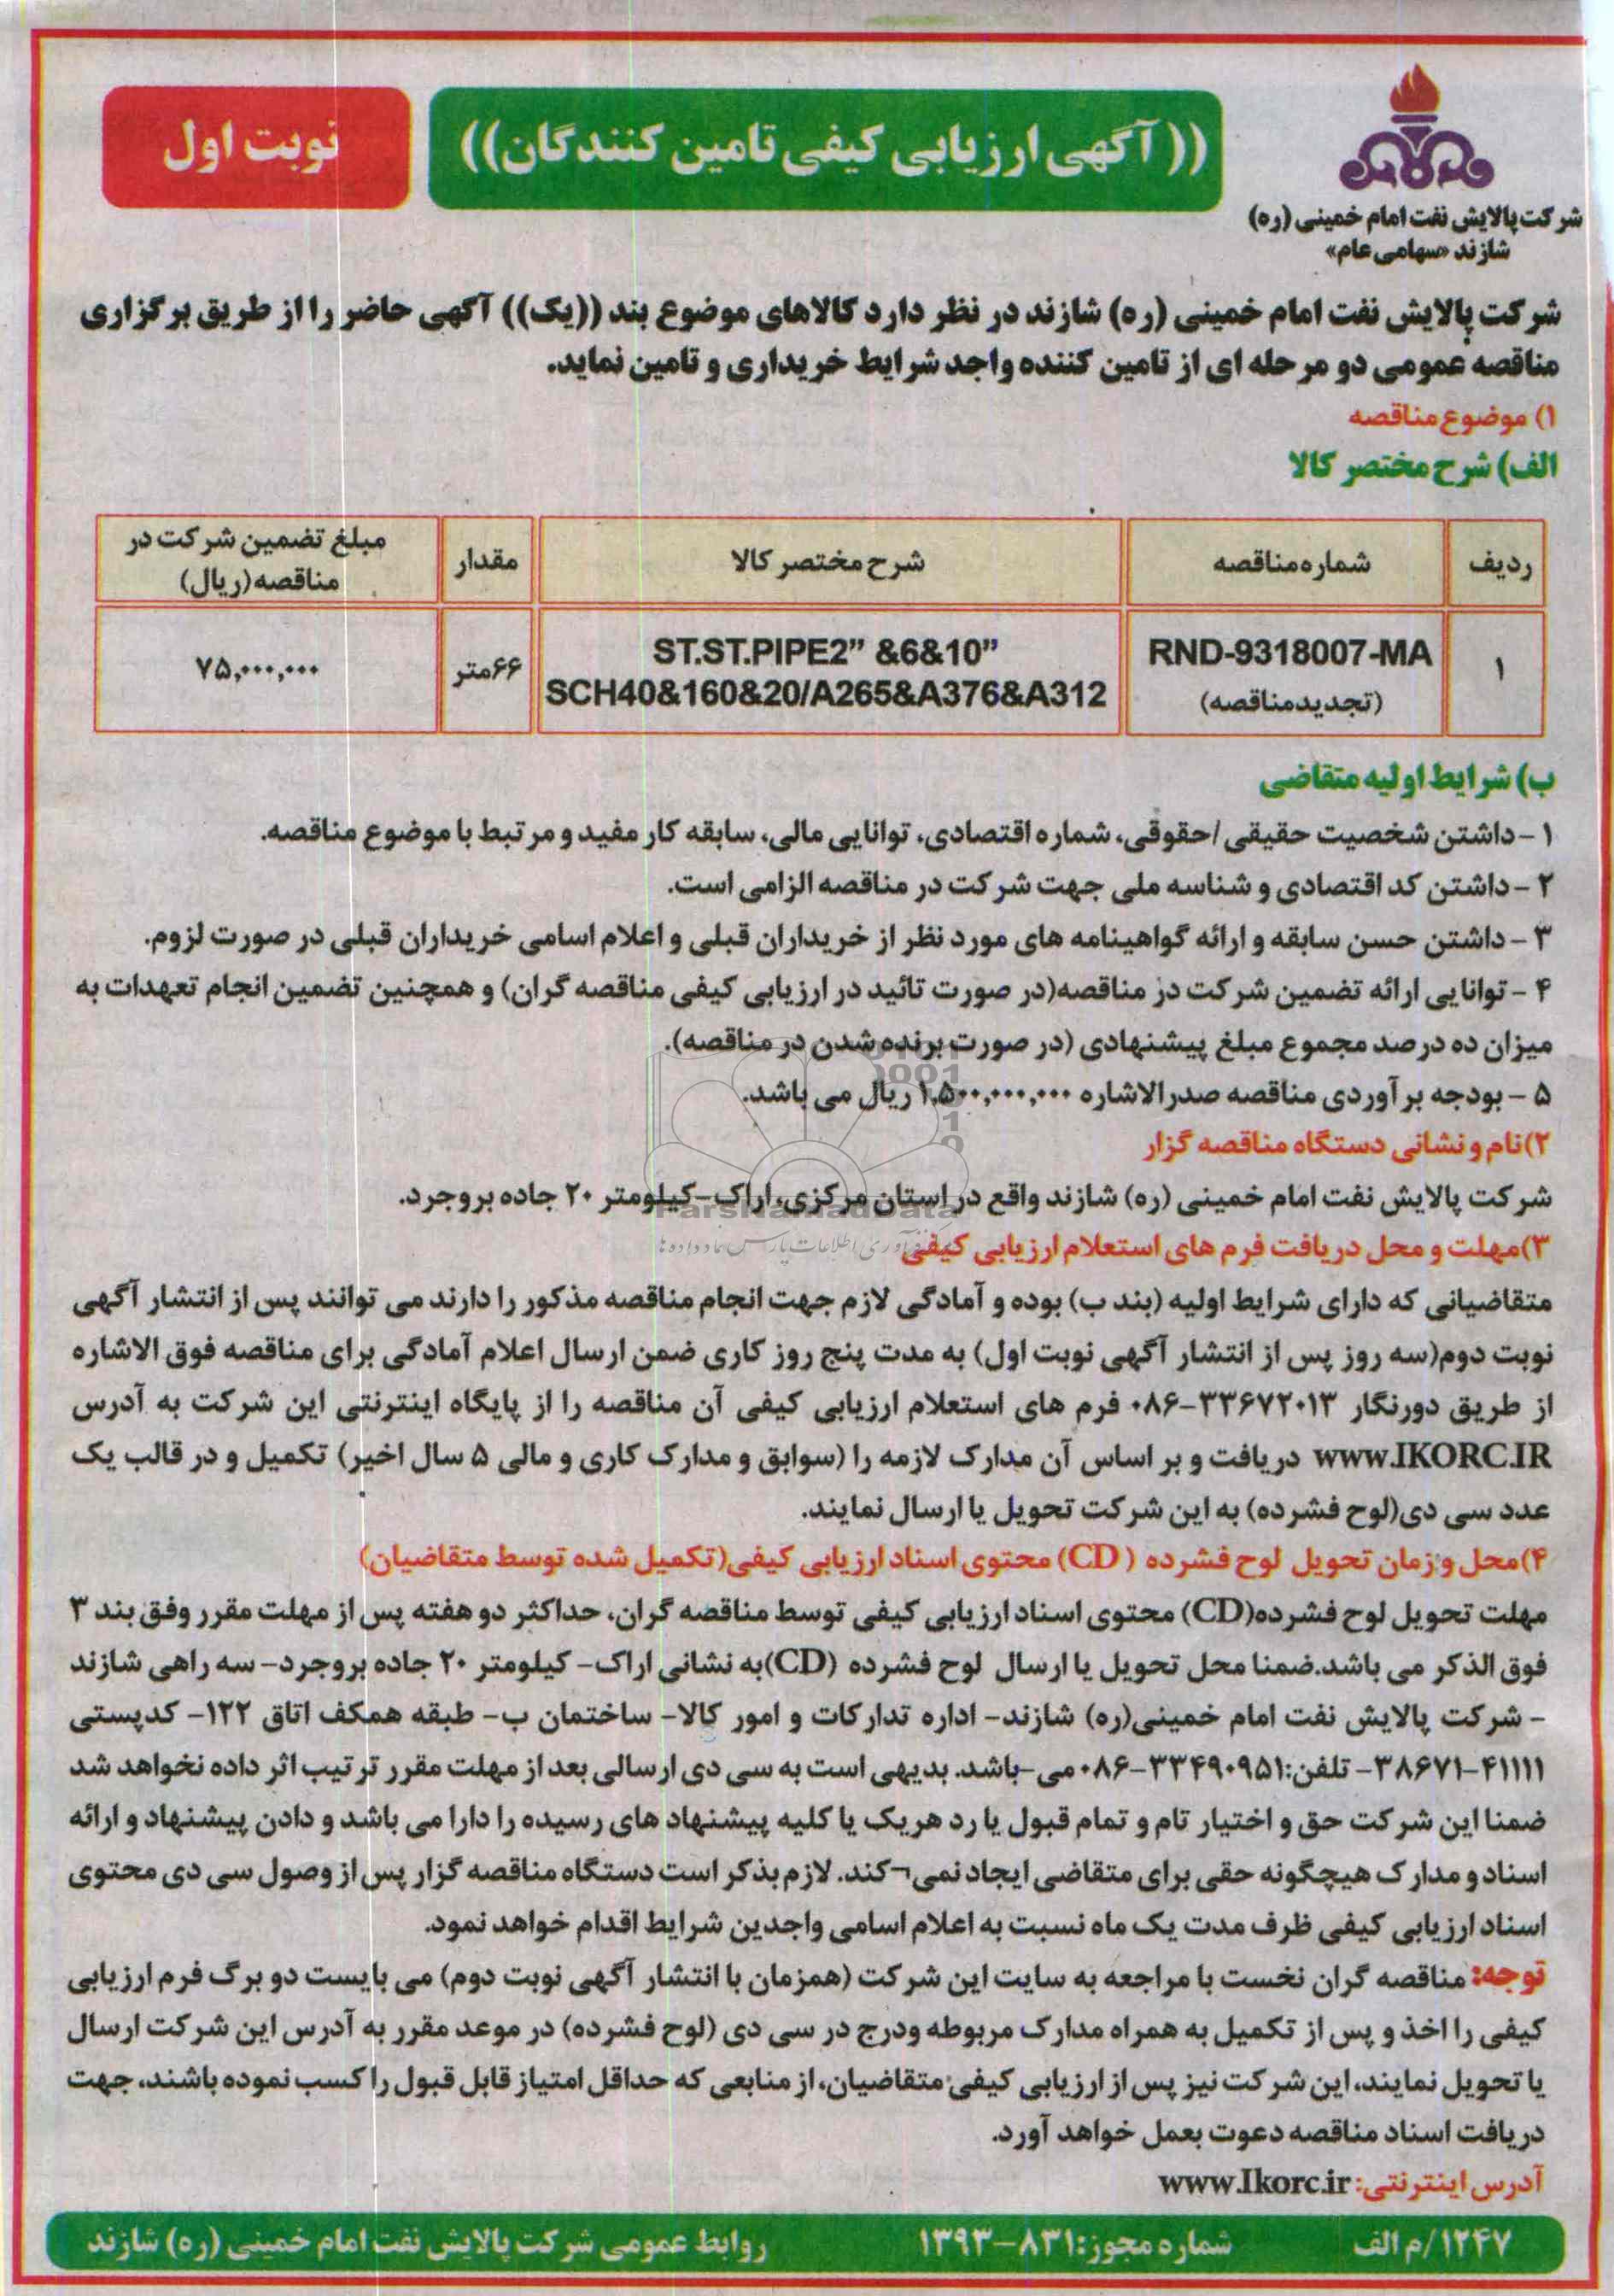 شرکت پالایش نفت امام خمینی (ره)
شازند «سهامی عام»
((آگهی ارزیابی کیفی تامین کنندگان))
نوبت اول
شرکت پالایش نفت امام خمینی (ره) شازند در نظر دارد کالاهای موضوع بند ((یک)) آگهی حاضر را از طریق برگزاری
مناقصه عمومی دو مرحله ای از تامین کننده واجد شرایط خریداری و تامین نماید.
۱) موضوع مناقصه
الف) شرح مختصر کالا
ردیف
شماره مناقصه
شرح مختصر کالا
مقدار
مبلغ تضمین شرکت در
مناقصه(ریال)
۱
RND-9318007-MA
(تجدیدمناقصه)
ST.ST.PIPE2” &6&10”
SCH40&160&20/A265&A376&A312
۶۶متر
۷۵,۰۰۰,۰۰۰
ب) شرایط اولیه متقاضی
۱ - داشتن شخصیت حقیقی /حقوقی، شماره اقتصادی، توانایی مالی، سابقه کار مفید و مرتبط با موضوع مناقصه.
۲ - داشتن کد اقتصادی و شناسه ملی جهت شرکت در مناقصه الزامی است.
۳ - داشتن حسن سابقه و ارائه گواهینامه های مورد نظر از خریداران قبلی و اعلام اسامی خریداران قبلی در صورت لزوم.
۴ - توانایی ارائه تضمین شرکت در مناقصه(در صورت تائید در ارزیابی کیفی مناقصه گران) و همچنین تضمین انجام تعهدات به
میزان ده درصد مجموع مبلغ پیشنهادی (در صورت برنده شدن در مناقصه).
۵ - بودجه برآوردی مناقصه صدرالاشاره ۱,۵۰۰,۰۰۰,۰۰۰ ریال می باشد.
۲)نام و نشانی دستگاه مناقصه گزار
شرکت پالایش نفت امام خمینی (ره) شازند واقع در استان مرکزی، اراک-کیلومتر ۲۰ جاده بروجرد.
ParsNamadData
۳)مهلت و محل دریافت فرم های استعلام ارزیابی کیفی
متقاضیانی که دارای شرایط اولیه (بند ب) بوده و آمادگی لازم جهت انجام مناقصه مذکور را دارند می توانند پس از انتشار آگهی
نوبت دوم(سه روز پس از انتشار آگهی نوبت اول) به مدت پنج روز کاری ضمن ارسال اعلام آمادگی برای مناقصه فوق الاشاره
از طریق دورنگار ۳۳۶۷۲۰۱۳-۰۸۶ فرم های استعلام ارزیابی کیفی آن مناقصه را از پایگاه اینترنتی این شرکت به آدرس
www.IKORC.IR دریافت و بر اساس آن مدارک لازمه را (سوابق و مدارک کاری و مالی ۵ سال اخیر) تکمیل و در قالب یک
عدد سی دی(لوح فشرده) به این شرکت تحویل یا ارسال نمایند.
۴)محل و زمان تحویل لوح فشرده (CD) محتوی اسناد ارزیابی کیفی(تکمیل شده توسط متقاضیان)
مهلت تحویل لوح فشرده(CD) محتوی اسناد ارزیابی کیفی توسط مناقصه گران، حداکثر دو هفته پس از مهلت مقرر وفق بند ۳
فوق الذکر می باشد.ضمنا محل تحویل یا ارسال لوح فشرده (CD)به نشانی اراک- کیلومتر ۲۰ جاده بروجرد- سه راهی شازند
- شرکت پالایش نفت امام خمینی(ره) شازند- اداره تدارکات و امور کالا- ساختمان ب- طبقه همکف اتاق ۱۲۲- کدپستی
۴۱۱۱۱-۳۸۶۷۱- تلفن:۳۳۴۹۰۹۵۱-۰۸۶ می-باشد. بدیهی است به سی دی ارسالی بعد از مهلت مقرر ترتیب اثر داده نخواهد شد
ضمنا این شرکت حق و اختیار تام و تمام قبول یا رد هریک یا کلیه پیشنهاد های رسیده را دارا می باشد و دادن پیشنهاد و ارائه
اسناد و مدارک هیچگونه حقی برای متقاضی ایجاد نمی¬کند. لازم بذکر است دستگاه مناقصه گزار پس از وصول سی دی محتوی
اسناد ارزیابی کیفی ظرف مدت یک ماه نسبت به اعلام اسامی واجدین شرایط اقدام خواهد نمود.
توجه: مناقصه گران نخست با مراجعه به سایت این شرکت (همزمان با انتشار آگهی نوبت دوم) می بایست دو برگ فرم ارزیابی
کیفی را اخذ و پس از تکمیل به همراه مدارک مربوطه ودرج در سی دی (لوح فشرده) در موعد مقرر به آدرس این شرکت ارسال
یا تحویل نمایند، این شرکت نیز پس از ارزیابی کیفی متقاضیان، از منابعی که حداقل امتیاز قابل قبول را کسب نموده باشند، جهت
دریافت اسناد مناقصه دعوت بعمل خواهد آورد.
آدرس اینترنتی: www.Ikorc.ir
۱۲۴۷/م الف
شماره مجوز:۸۳۱-۱۳۹۳
روابط عمومی شرکت پالایش نفت امام خمینی (ره) شازند